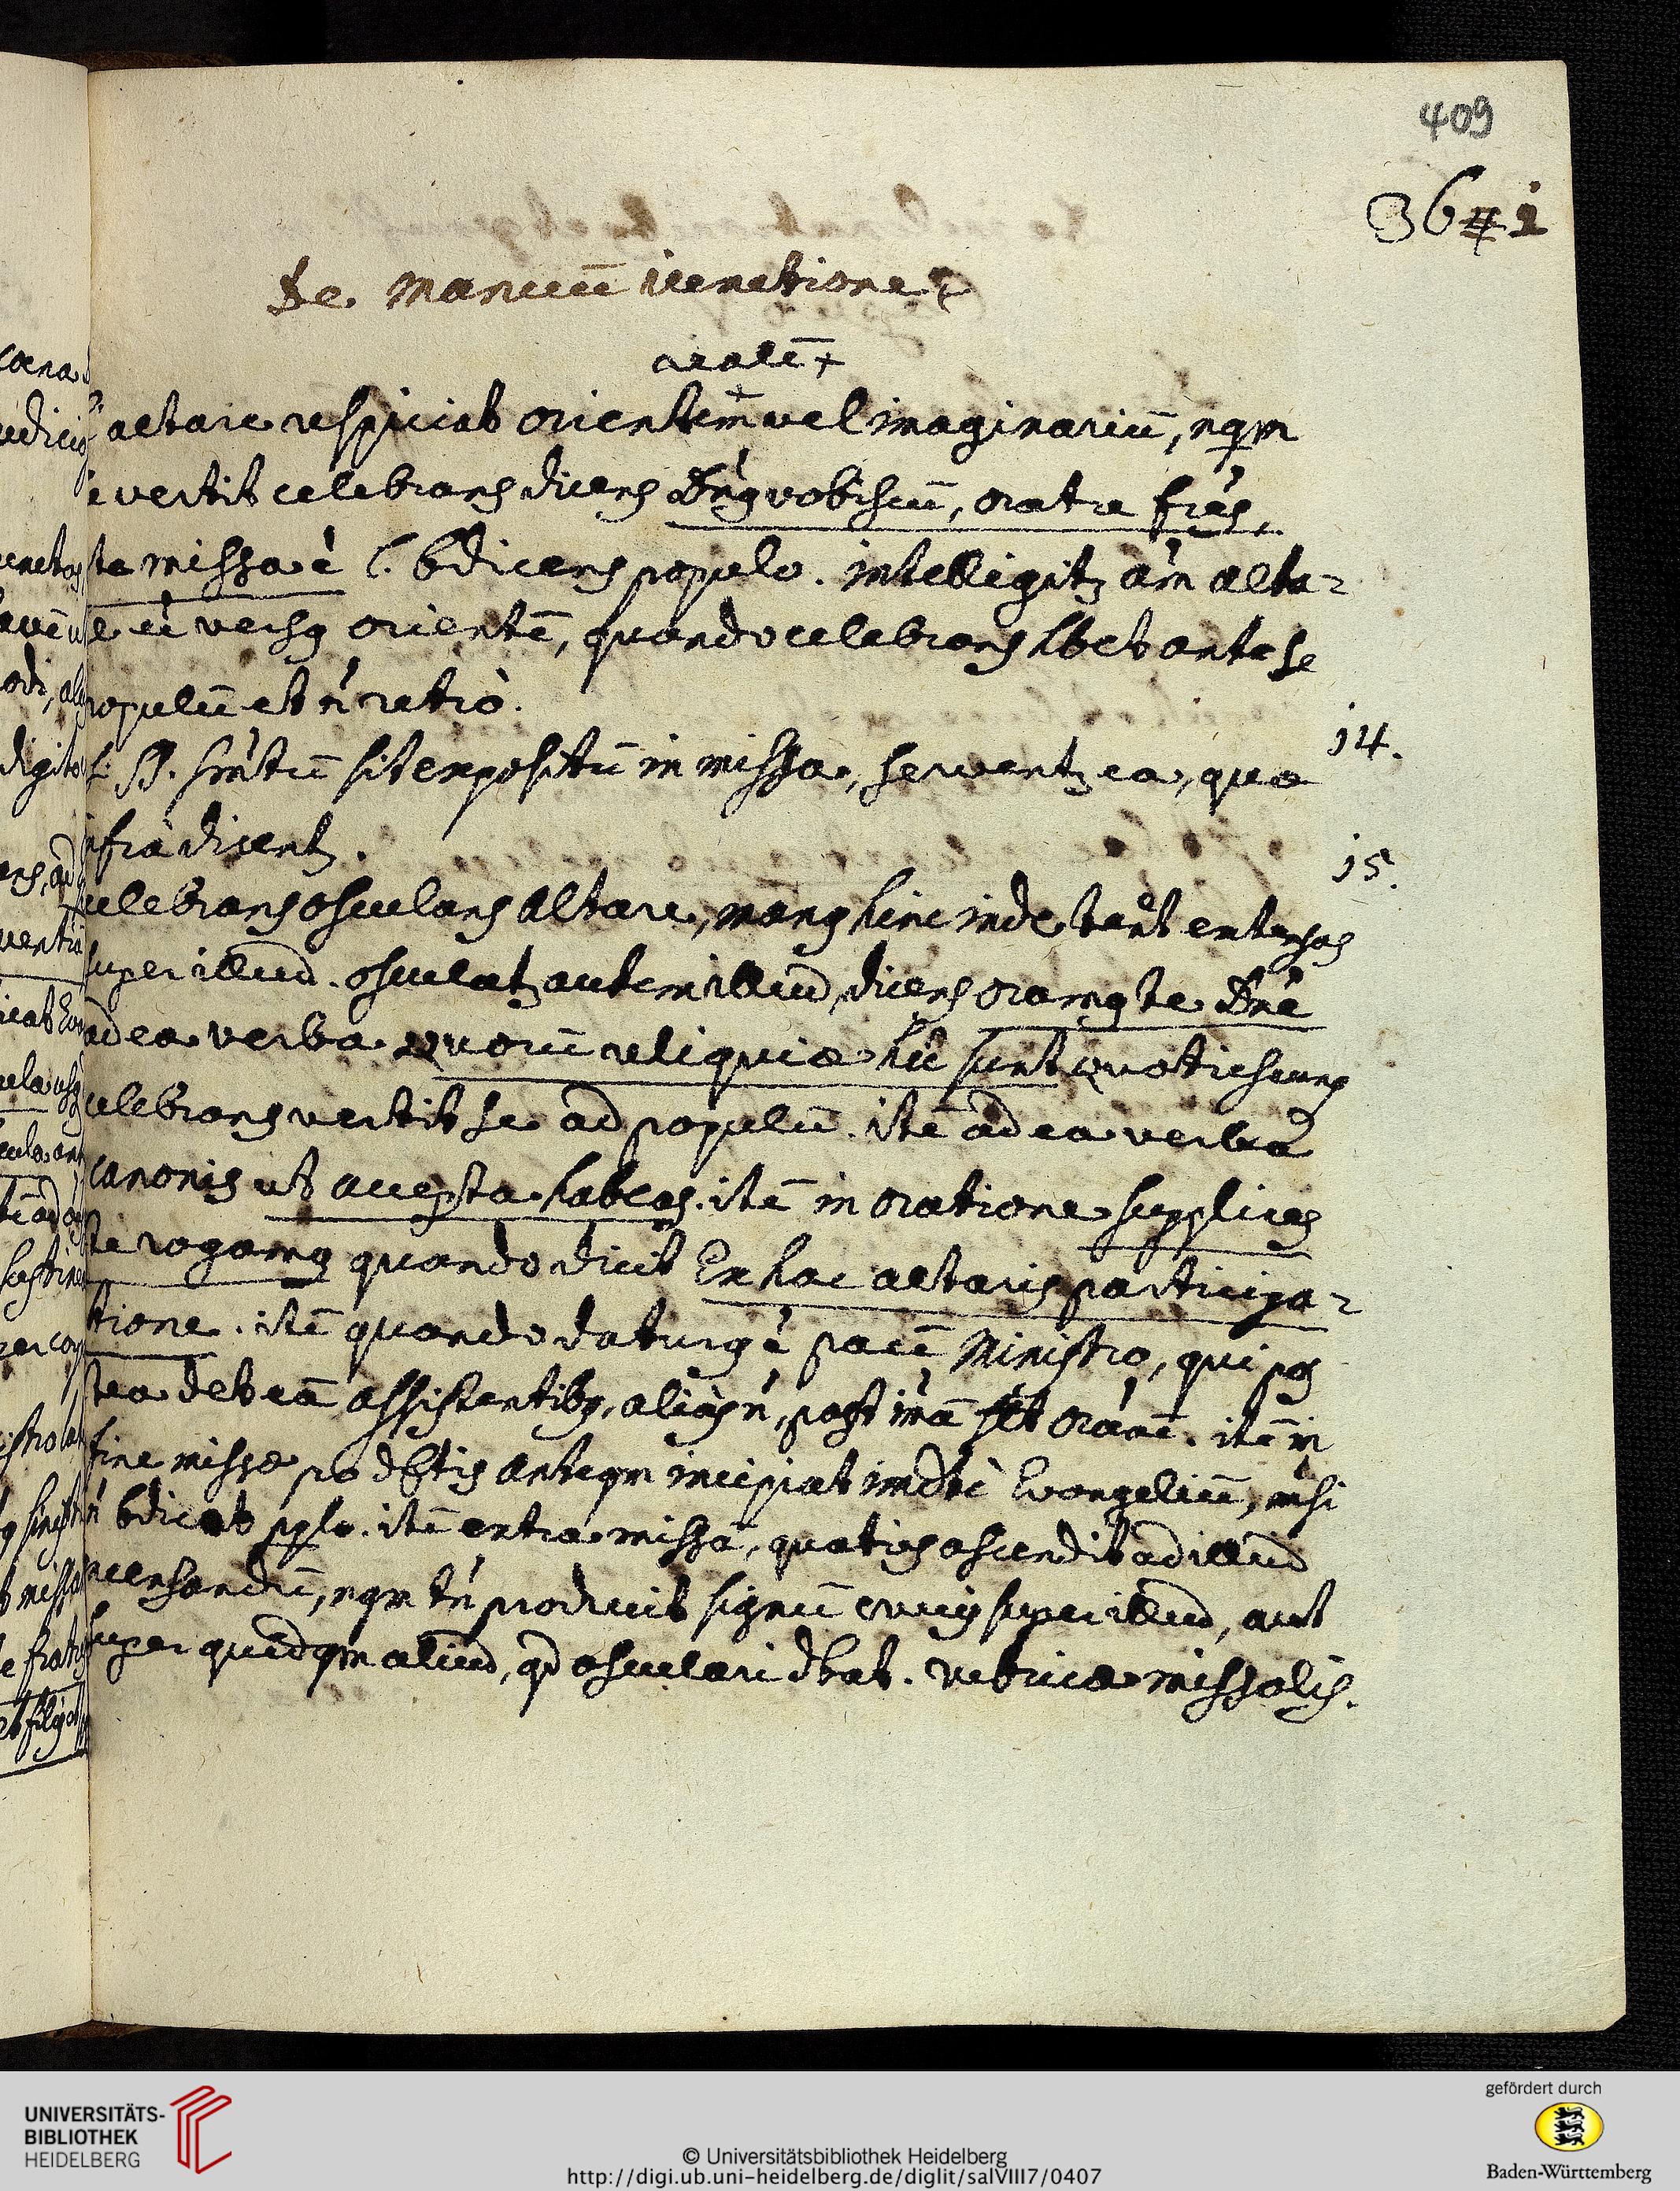 409
3641
De Manuum veneratione
realē +
altare respiciat orientem vel imaginariū, nqm
vertit celebrans dicens Dn̄s vobiscū, orate frēs,
te missa ē l. bdicens populo. intelligitr aūt alta-
e ēē versus orientē, quando celebrans hbet ante se
populū et n̄ retrò.
14.
Si SS. Srm̄tū sit expositū in missa, serventr ea, quæ
infrà dicentr.
15.
celebrans osculans altare, manus hinc inde tenet extensas
super illud. osculatr autem illud, dicens oramus te Dn̄e
ad ea verba quorū reliquiæ hīc sunt quotiescunq
celebrans vertit se ad populū. itē ad ea verba
canonis uti accepta habeas. itē in oratione supplices
te rogamus quando dicit Ex hac altaris participa-
tione. itē quando daturus ē pacē Ministro, qui pos
tea det eā assistentibus, aliàs n̄, post 1mā orāōnē. itē in
fine missæ anteqm incipiat Evangeliū, nisi
n̄ bdicat pplo. itē extra missā, quoties ascendit ad illud
incensandū, nqm tn̄ producit signū crucis super illud, aut
super quidqm aliud, qd osculari dbat. rubricæ missalis.
UNIVERSITÄTS-
BIBLIOTHEK
HEIDELBERG
© Universitätsbibliothek Heidelberg
http://digi.ub.uni-heidelberg.de/diglit/salVIII7/0407
gefördert durch
Baden-Württemberg